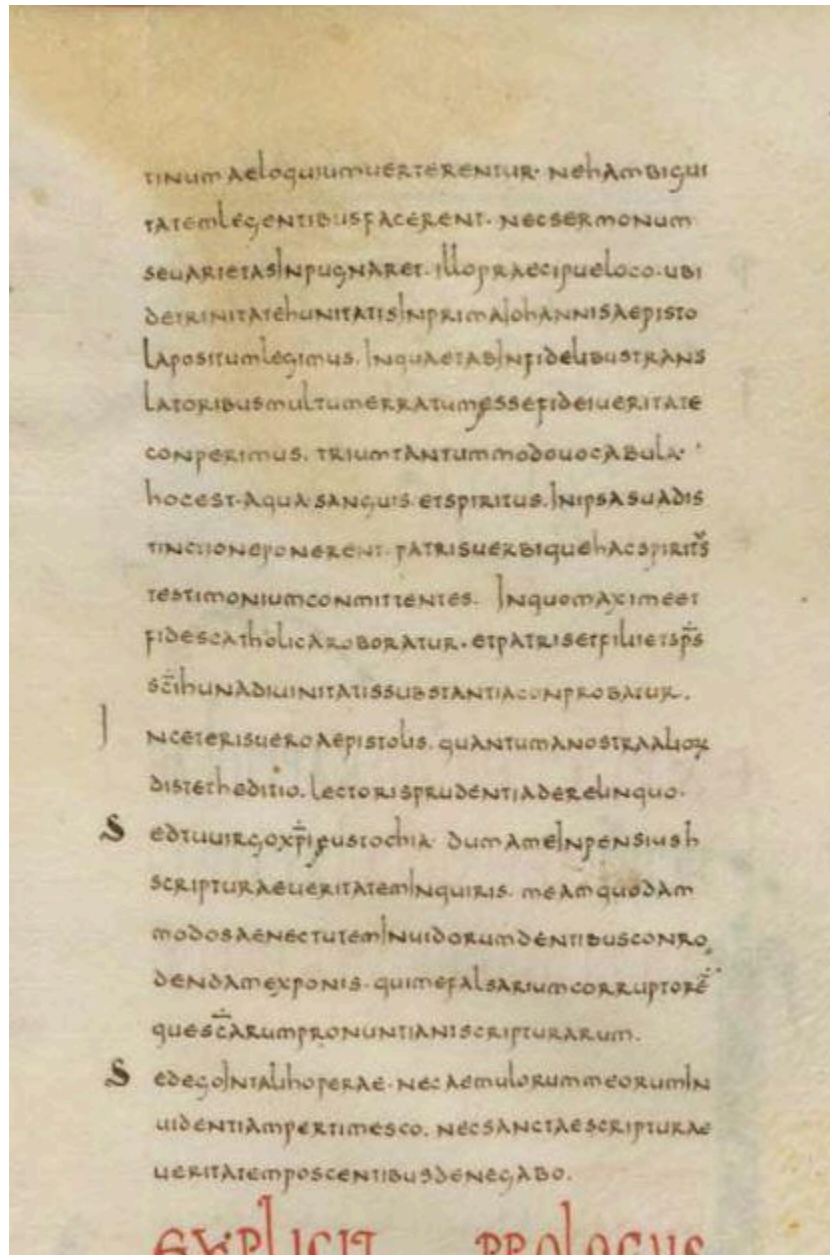 tinum aeloquium uerterentur· neh ambigui
tatem legentibus facerent· nec sermonum
se uarietas Inpugnaret· illo praecipue loco· ubi
de trinitate hunitatis In prima Iohannis aepisto
la positum legimus. In qua et ab Infidelibus trans
latoribus multum erratum esse fidei ueritate
conperimus. trium tantummodo uocabula·
hoc est· aqua· sanguis· et spiritus. In ipsa sua dis
tinctione ponerent· patris uerbique hac spirit̄s
testimonium conmittentes. In quo maxime et
fides catholica roboratur. et patris et filii et sp̄s
sc̄i huna diuinitatis substantia conprobatur.
In ceteris uero aepistolis. quantum a nostra alioꝝ
distet heditio. lectoris prudentia derelinquo·
Sed tu uirgo xp̄i eustochia· dum a me Inpensius h
scripturae ueritatem Inquiris· meam quodam
modo saenectutem Inuidorum dentibus conro
dendam exponis· qui me falsarium corruptorē
que sc̄arum pronuntiant scripturarum.
Sed ego In tali hoperae· nec aemulorum meorum In
uidentiam pertimesco. nec sanctae scripturae
ueritatem poscentibus denegabo.
EXPLICIT PROLOGUS